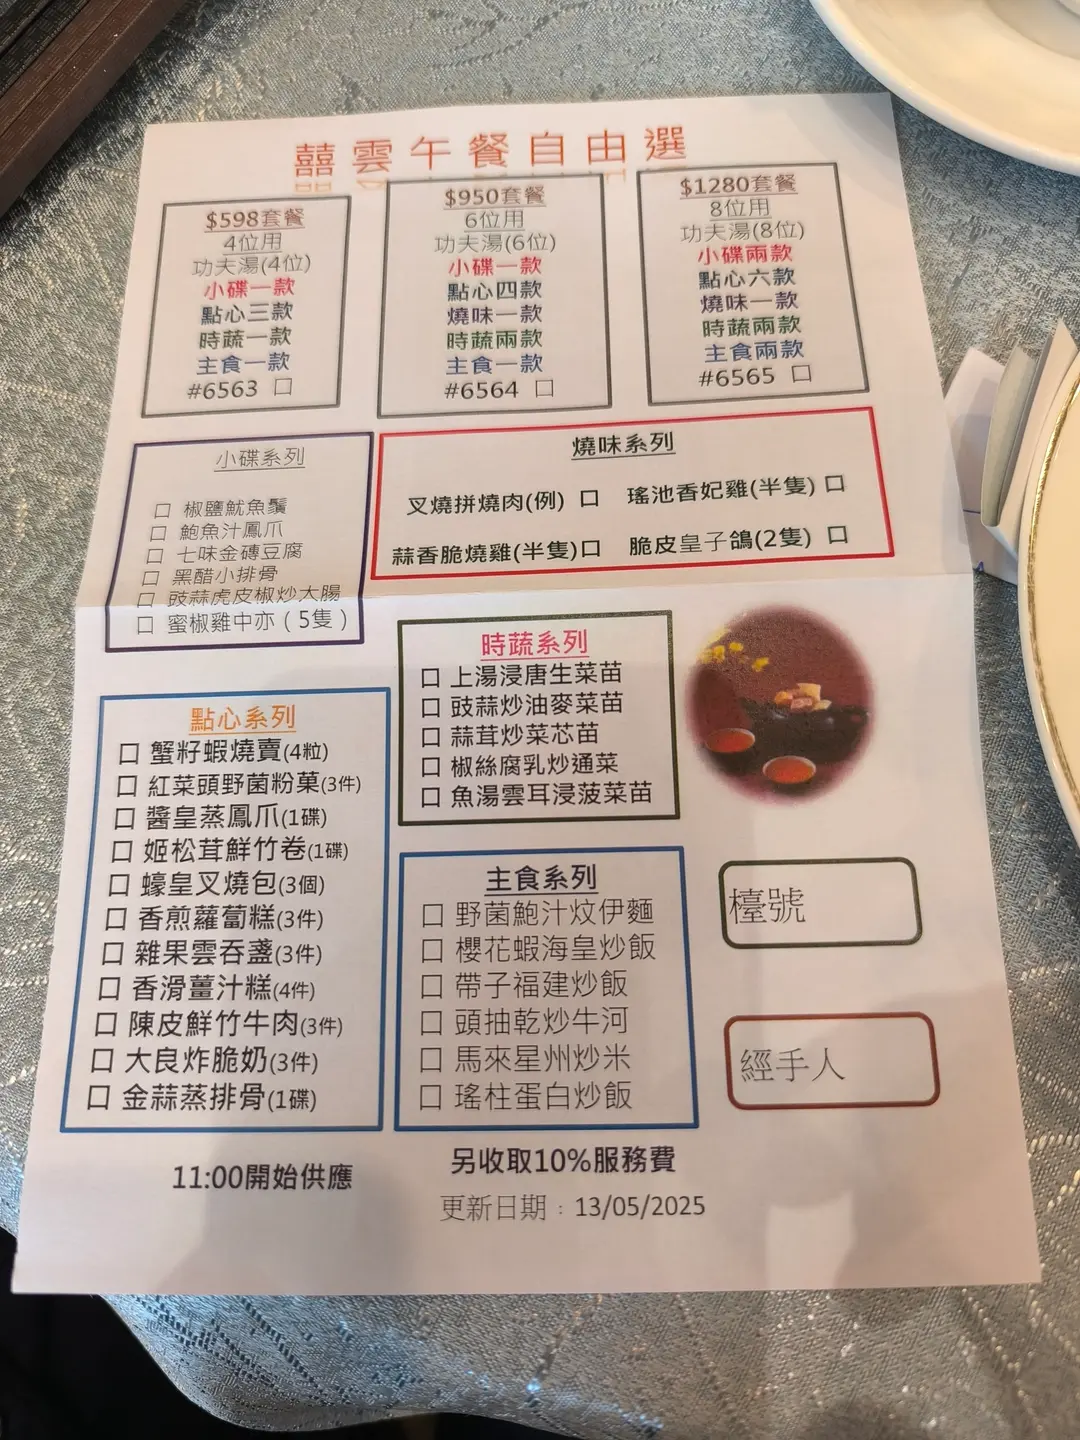 囍雲午餐自由選
$598套餐
4位用
功夫湯(4位)
小碟一款
點心三款
時蔬一款
主食一款
#6563 口
$950套餐
6位用
功夫湯(6位)
小碟一款
點心四款
燒味一款
時蔬兩款
主食一款
#6564 口
$1280套餐
8位用
功夫湯(8位)
小碟兩款
點心六款
燒味一款
時蔬兩款
主食兩款
#6565 口
小碟系列
□ 椒鹽魷魚鬚
□ 鮑魚汁鳳爪
□ 七味金磚豆腐
□ 黑醋小排骨
□ 豉蒜虎皮椒炒大腸
□ 蜜椒雞中亦（5隻）
燒味系列
叉燒拼燒肉(例) 口 瑤池香妃雞(半隻) 口
蒜香脆燒雞(半隻)口 脆皮皇子鴿(2隻) 口
時蔬系列
口 上湯浸唐生菜苗
口 豉蒜炒油麥菜苗
口 蒜茸炒菜芯苗
口 椒絲腐乳炒通菜
口 魚湯雲耳浸菠菜苗
點心系列
口 蟹籽蝦燒賣(4粒)
口 紅菜頭野菌粉菓(3件)
口 醬皇蒸鳳爪(1碟)
口 姬松茸鮮竹卷(1碟)
口 蠔皇叉燒包(3個)
口 香煎蘿蔔糕(3件)
口 雜果雲吞盞(3件)
口 香滑薑汁糕(4件)
口 陳皮鮮竹牛肉(3件)
口 大良炸脆奶(3件)
口 金蒜蒸排骨(1碟)
主食系列
□ 野菌鮑汁炆伊麵
□ 櫻花蝦海皇炒飯
□ 帶子福建炒飯
□ 頭抽乾炒牛河
□ 馬來星州炒米
□ 瑤柱蛋白炒飯
檯號
經手人
11:00開始供應
另收取10%服務費
更新日期：13/05/2025